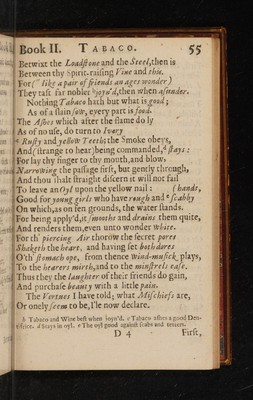 Book II. TABACO. 55
Betwixt the Loadstone and the Steel, then is
Between thy Spirit-raising Vine and this.
For (like a pair of friends an ages wonder)
They tast far nobler b joyn'd, then when asunder.
Nothing Tabaco hath but what is good;
As of a slain sow, every part is food.
The Ashes which after the flame do ly
As of no use, do turn to Ivory
c Rusty and yellow Teeth: the Smoke obeys,
And (strange to hear) being commanded, d stays:
For lay thy finger to thy mouth, and blow,
Narrowing the passage first, but gently through,
And thou shalt straight discern it will not fail
To leave an Oyl upon the yellow nail: (hands,
Good for young girls who have rough and e scabby
On which, as on fen grounds, the water stands.
For being apply'd, it smooths and drains them quite,
And renders them, even unto wonder white.
For th' piercing Air thorow the secret pores
Shaketh the heart, and having set both dores
O'th' stomach ope, from thence wind-musick plays,
To the hearers mirth, and to the minstrels ease.
Thus they the laughter of their friends do gain,
And purchase beauty with a little pain.
The Vertues I have told; what Mischiefs are,
Or onely seem to be, I'le now declare.
b Tabaco and Wine best when joyn'd. c Tabaco ashes a good Den-
tifrice. d Stays in oyl. e The oyl good against scabs and tetters.
D 4 First,